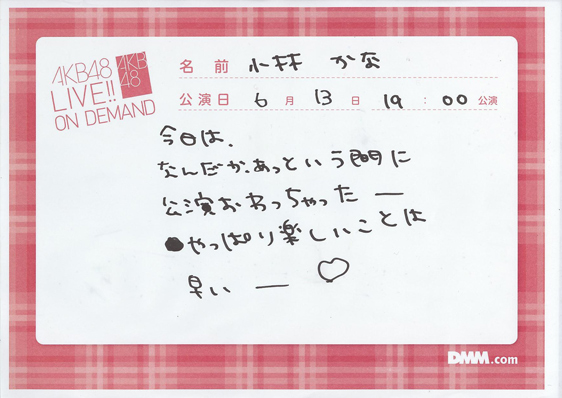 AKB48
LIVE!!
ON DEMAND
AKB
48
名前 小林 かな
公演日 6月13日 19:00公演
今日は、
なんだか、あっという間に
公演おわっちゃったー
やっぱり楽しいことは
早いー
DMM.com